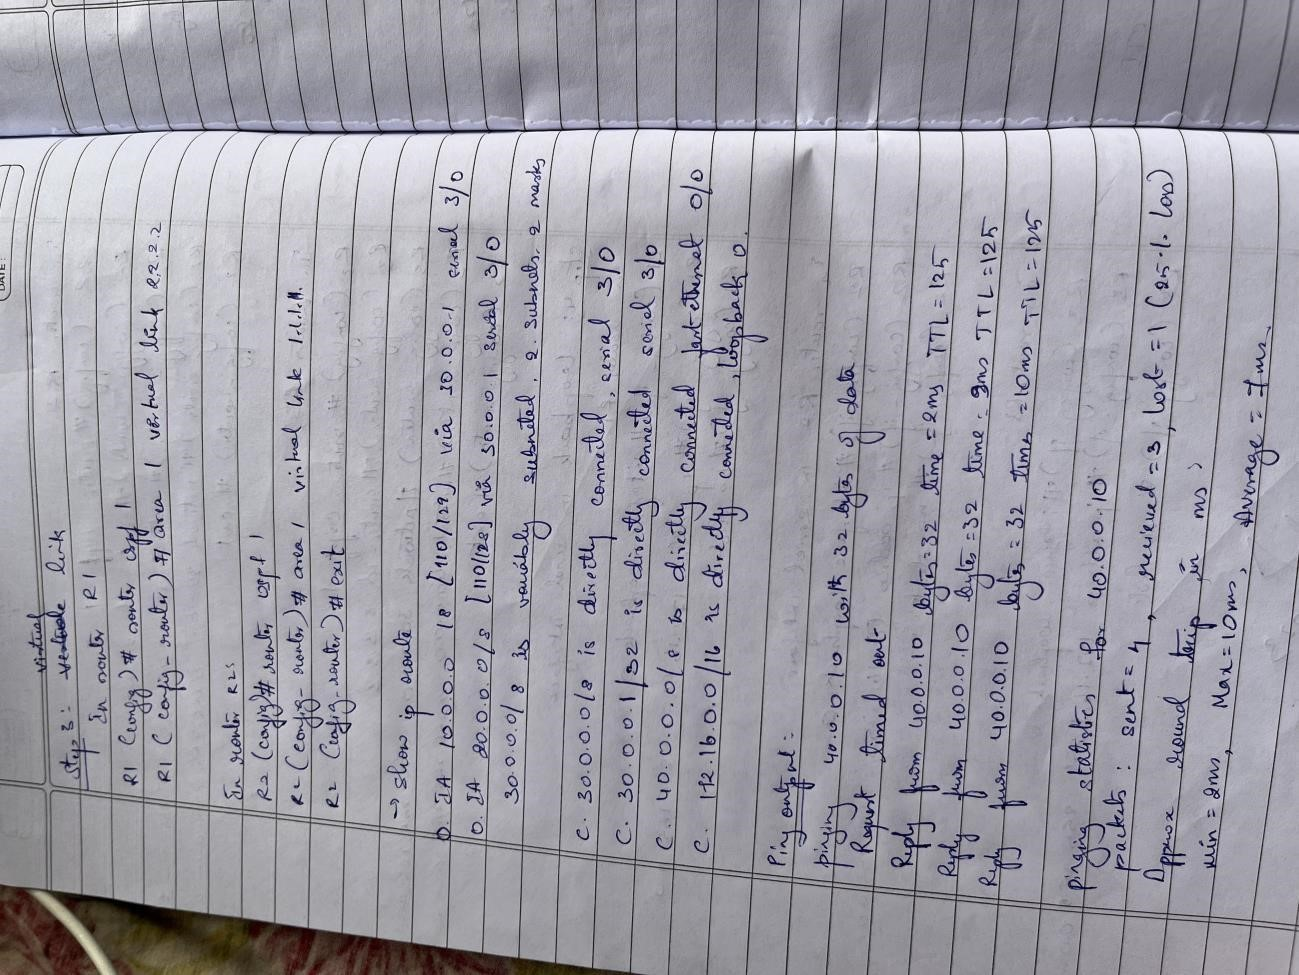 DATE:
Step 3: virtual link
In router R1
R1 (config)# router ospf 1
R1 (config-router)# area 1 virtual link 2.2.2.2
In router R2:
R2 (config)# router ospf 1
R2 (config-router)# area 1 virtual link 1.1.1.1.
R2 (config-router)# exit
→ show ip route
O. IA 10.0.0.0 18 [110/129] via 30.0.0.1 serial 3/0
O. IA 20.0.0.0/8 [110/128] via 30.0.0.1 serial 3/0
30.0.0.0/8 is variably subneted, 2 subnets, 2 masks
C. 30.0.0.0/8 is directly connected, serial 3/0
C. 30.0.0.1/32 is directly connected serial 3/0
C. 40.0.0.0/8. is directly connected fast ethernet 0/0
C. 172.16.0.0/16 is directly connected, loopback 0.
Ping output:-
pinging 40.0.0.10 with 32 bytes of data
Request timed out
Reply from 40.0.0.10 bytes=32 time=2ms TTL=125
Reply from 40.0.0.10 bytes=32 time=9ms TTL=125
Reply from 40.0.0.10 bytes=32 time=10ms TTL=125
pinging statistics for 40.0.0.10
packets: sent=4, recieved=3, lost=1 (25% loss)
Approx round trip in ms,
min=2ms, Max=10ms, Average=7ms.